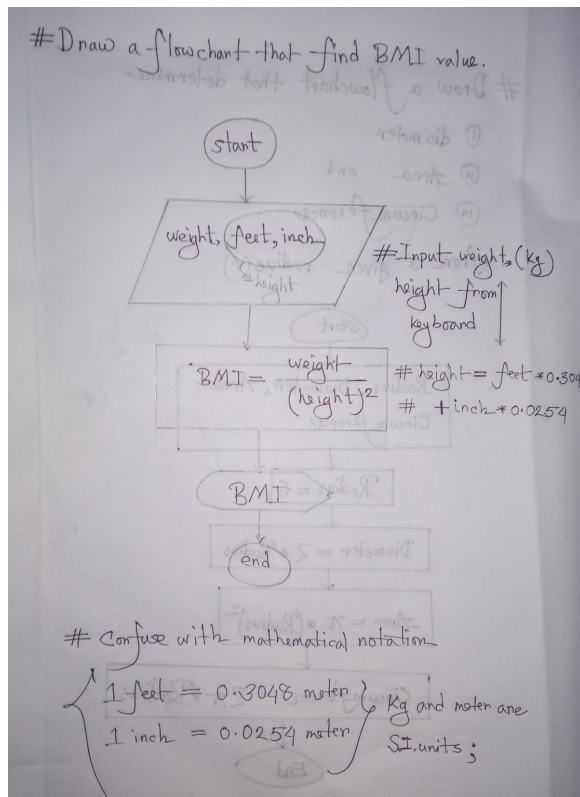 # Draw a flowchart that find BMI value.
start
weight, feet, inch
height
# Input weight, (kg)
height from
keyboard
BMI = weight / (height)2
# height = feet * 0.304
# + inch * 0.0254
BMI
end
# Confuse with mathematical notation
1 feet = 0.3048 meter
1 inch = 0.0254 meter
Kg and meter are
SI. units;